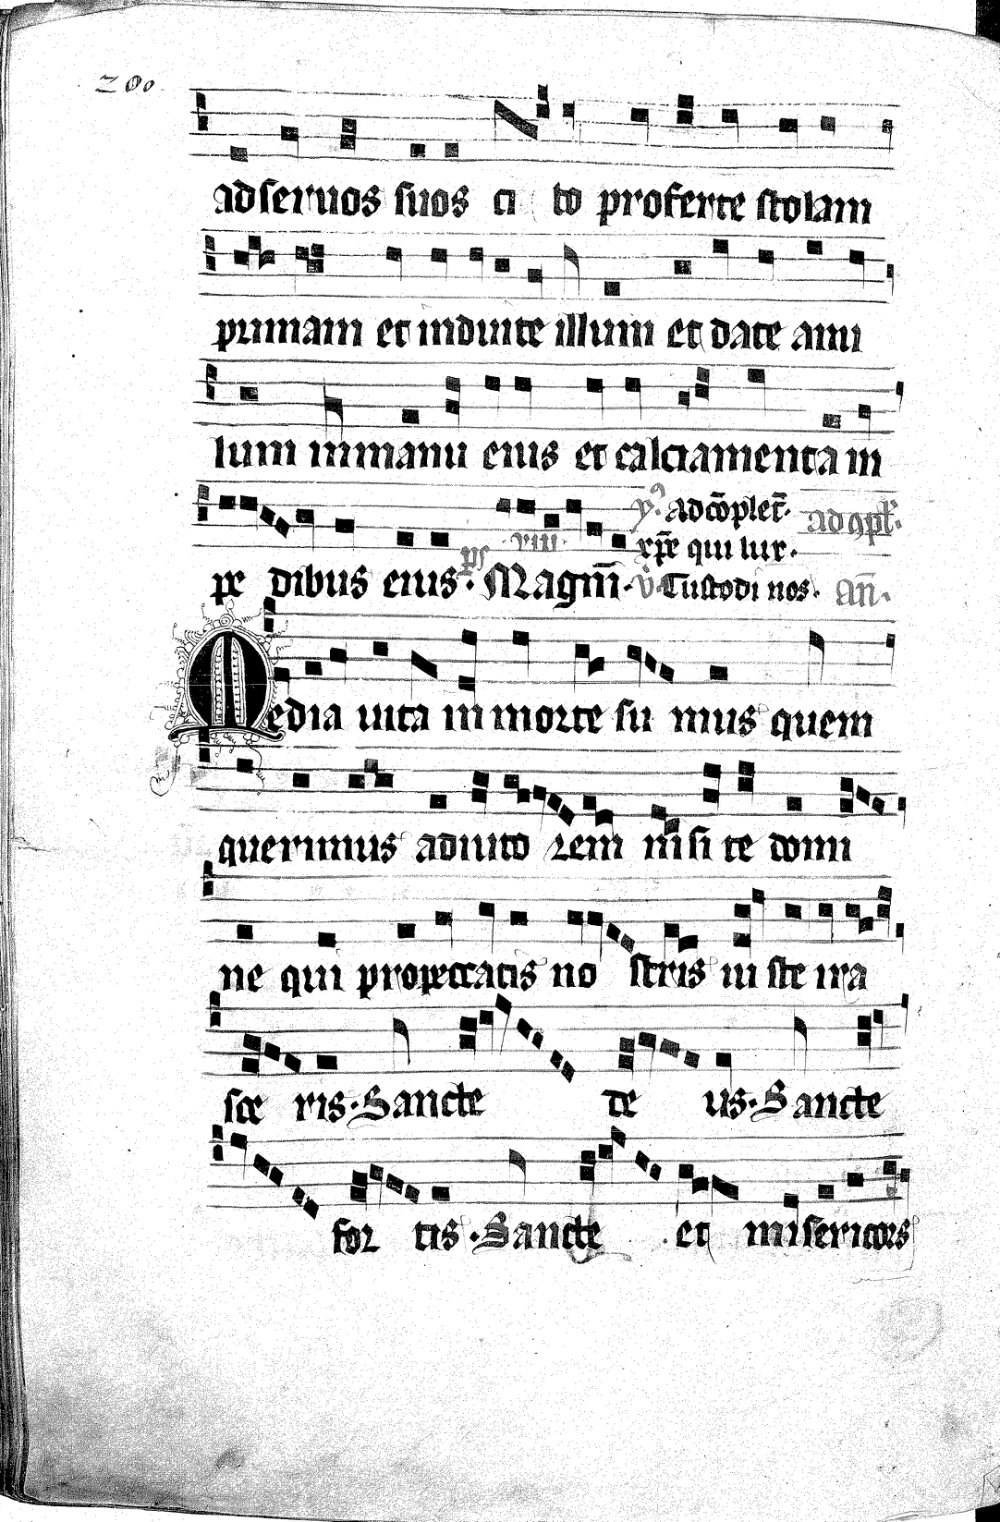 200
ad seruos suos ci to proferte stolam
primam et induite illum et date anu
lum in manu eius et calciamenta in
ad cōplet̄. ad 9pl̄.
viii. xp̄e qui lux.
pe dibus eius. ps Magnī. v̄. Custodi nos. An̄.
Media uita in morte su mus quem
querimus adiuto rem nisi te domi
ne qui propeccatis no stris iu ste ira
sce ris. Sancte de us. Sancte
for tis. Sancte et misericors